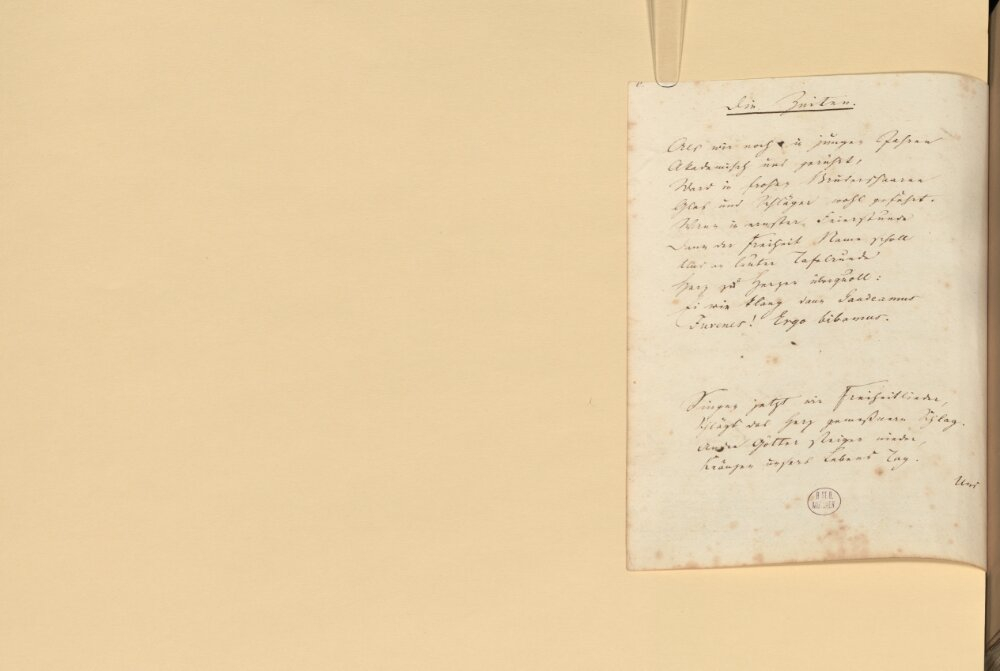 Die Zeiten.
Als wir noch in jungen Jahren
Akademisch uns gerührt,
Ward in frohen Bruderschaaren
Glas und Schläger wohl geführt.
Wenn in ernster Feierstunde
Dann der Freiheit Name scholl
Und an lauter Tafelrunde
Herz zu Herzen überquoll:
Ei wie klang dann Gaudeamus
Juvenes! Ergo bibamus.
Singen jetzt wir Freiheitlieder,
Schlägt das Herz gemeßnern Schlag.
Andre Götter steigen nieder,
Kränzen unsers Lebens Tag.
Uns
MÜNCHEN